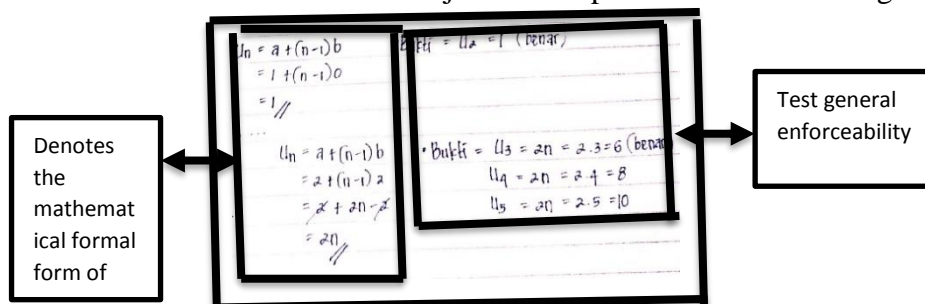 Denotes
the
mathemat
ical formal
form of
Un = a + (n-1) b
= 1 + (n-1) 0
= 1 //
Un = a + (n-1) b
= 2 + (n-1) 2
= 2 + 2n - 2
= 2n //
Bukti = U2 = 1 (benar)
• Bukti = U3 = 2n = 2.3 = 6 (benar)
U4 = 2n = 2.4 = 8
U5 = 2n = 2.5 = 10
Test general
enforceability